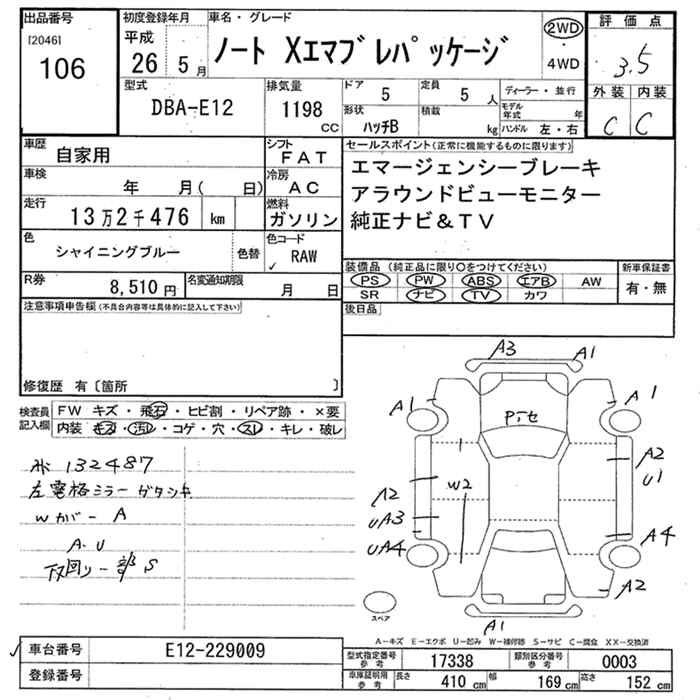 出品番号
[2046]
106
初度登録年月
平成
26 5 月
車名・グレード
ノート Xエマブレパッケージ
2WD
・
4WD
評価点
3.5
外装 内装
C C
型式
DBA-E12
排気量
1198
CC
ドア 5
形状
ハッチB
定員 5 人
積載
kg
ディーラー・並行
モデル
年式 年
ハンドル 左・右
車歴
自家用
シフト
FAT
車検
年 月( 日)
冷房
AC
走行
13万2千476 km
燃料
ガソリン
色
シャイニングブルー
色替
色コード
✓ RAW
R券
8,510円
名変通知期限
月 日
セールスポイント(正常に機能するものに限ります)
エマージェンシーブレーキ
アラウンドビューモニター
純正ナビ&TV
装備品 (純正品に限り〇をつけてください)
PS PW ABS エアB AW
SR ナビ TV カワ
新車保証書
有・無
後日品
注意事項申告欄(不具合内容等は具体的に記入して下さい)
修復歴 有〔箇所 〕
検査員
記入欄
FW キズ・飛石・ヒビ割・リペア跡・×要
内装 キズ・汚レ・コゲ・穴・スレ・キレ・破レ
132487
左電格ミラーガタシキ
Wカバー A
A・U
下回り一部S
A3
A1
A1
A1
Pイセ
A2
U1
W2
A2
UA3
UA4
A4
A2
A1
スペア
A-キズ E-エクボ U-凹み W-補修跡 S-サビ C-腐食 XX-交換済
✓ 車台番号
E12-229009
登録番号
型式指定番号
参考
17338
類別区分番号
参考
0003
車庫証明用
参考
長さ 410 cm 幅 169 cm 高さ 152 cm